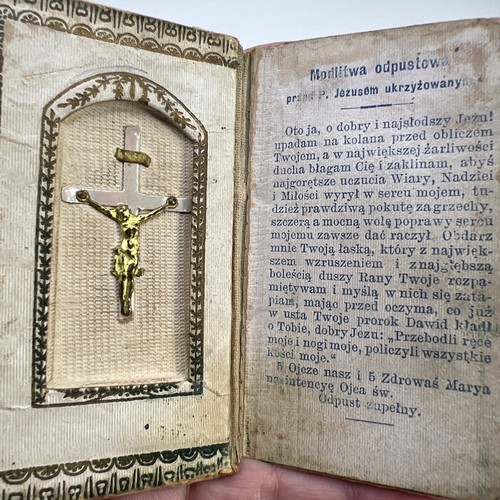 Modlitwa odpustowa
przed P. Jezusem ukrzyżowanym
Oto ja, o dobry i najsłodszy Jezu!
upadam na kolana przed obliczem
Twojem, a w największej żarliwości
ducha błagam Cię i zaklinam, abyś
najgorętsze uczucia Wiary, Nadziei
i Miłości wyrył w sercu mojem, tu-
dzież prawdziwą pokutę za grzechy,
szczerą a mocną wolę poprawy sercu
mojemu zawsze dać raczył. Obdarz
mnie Twoją łaską, który z najwięk-
szem wzruszeniem i z największą
boleścią duszy Rany Twoje rozpa-
miętywam i myślą w nich się zata-
piam, mając przed oczyma, co już
w usta Twoje prorok Dawid kładł
o Tobie, dobry Jezu: „Przebodli ręce
moje i nogi moje, policzyli wszystkie
kości moje.“
5 Ojcze nasz i 5 Zdrowaś Marya
na intencyę Ojca św.
Odpust zupełny.